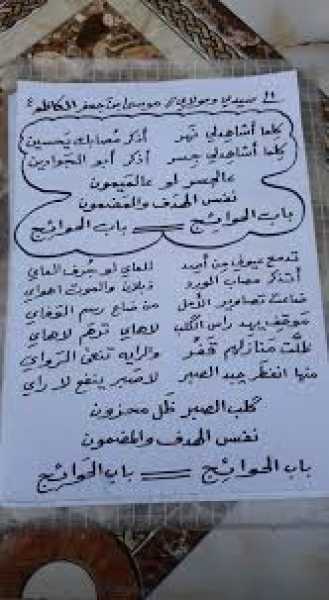 !! سيدي ومولاي موسى بن جعفر الكاظم ع
كلما أشاهدلي نهر أذكر مصابك يحسين
كلما أشاهدلي جسر أذكر أبو الجوادين
عالجسر لو عالميمون
نفس الهدف والمضمون
باب الحوائج == باب الحوائج
تدمع عيوني من أصد للماي لو جرف الماي
أتذكر مصاب الورد ذبلان والموت اهواي
ضاعت تصاوير الأمل من ضاع رسم
موقف يهد راس الگلب لاهاي ترهم لاهاي
ظلت منازلهم قفر والرايه تنعى الرواي
منها انفطر چبد الصبر لا صبر ينفع لا راي
گلب الصبر ظل محزون
نفس الهدف والمضمون
باب الحوائج == باب الحوائج